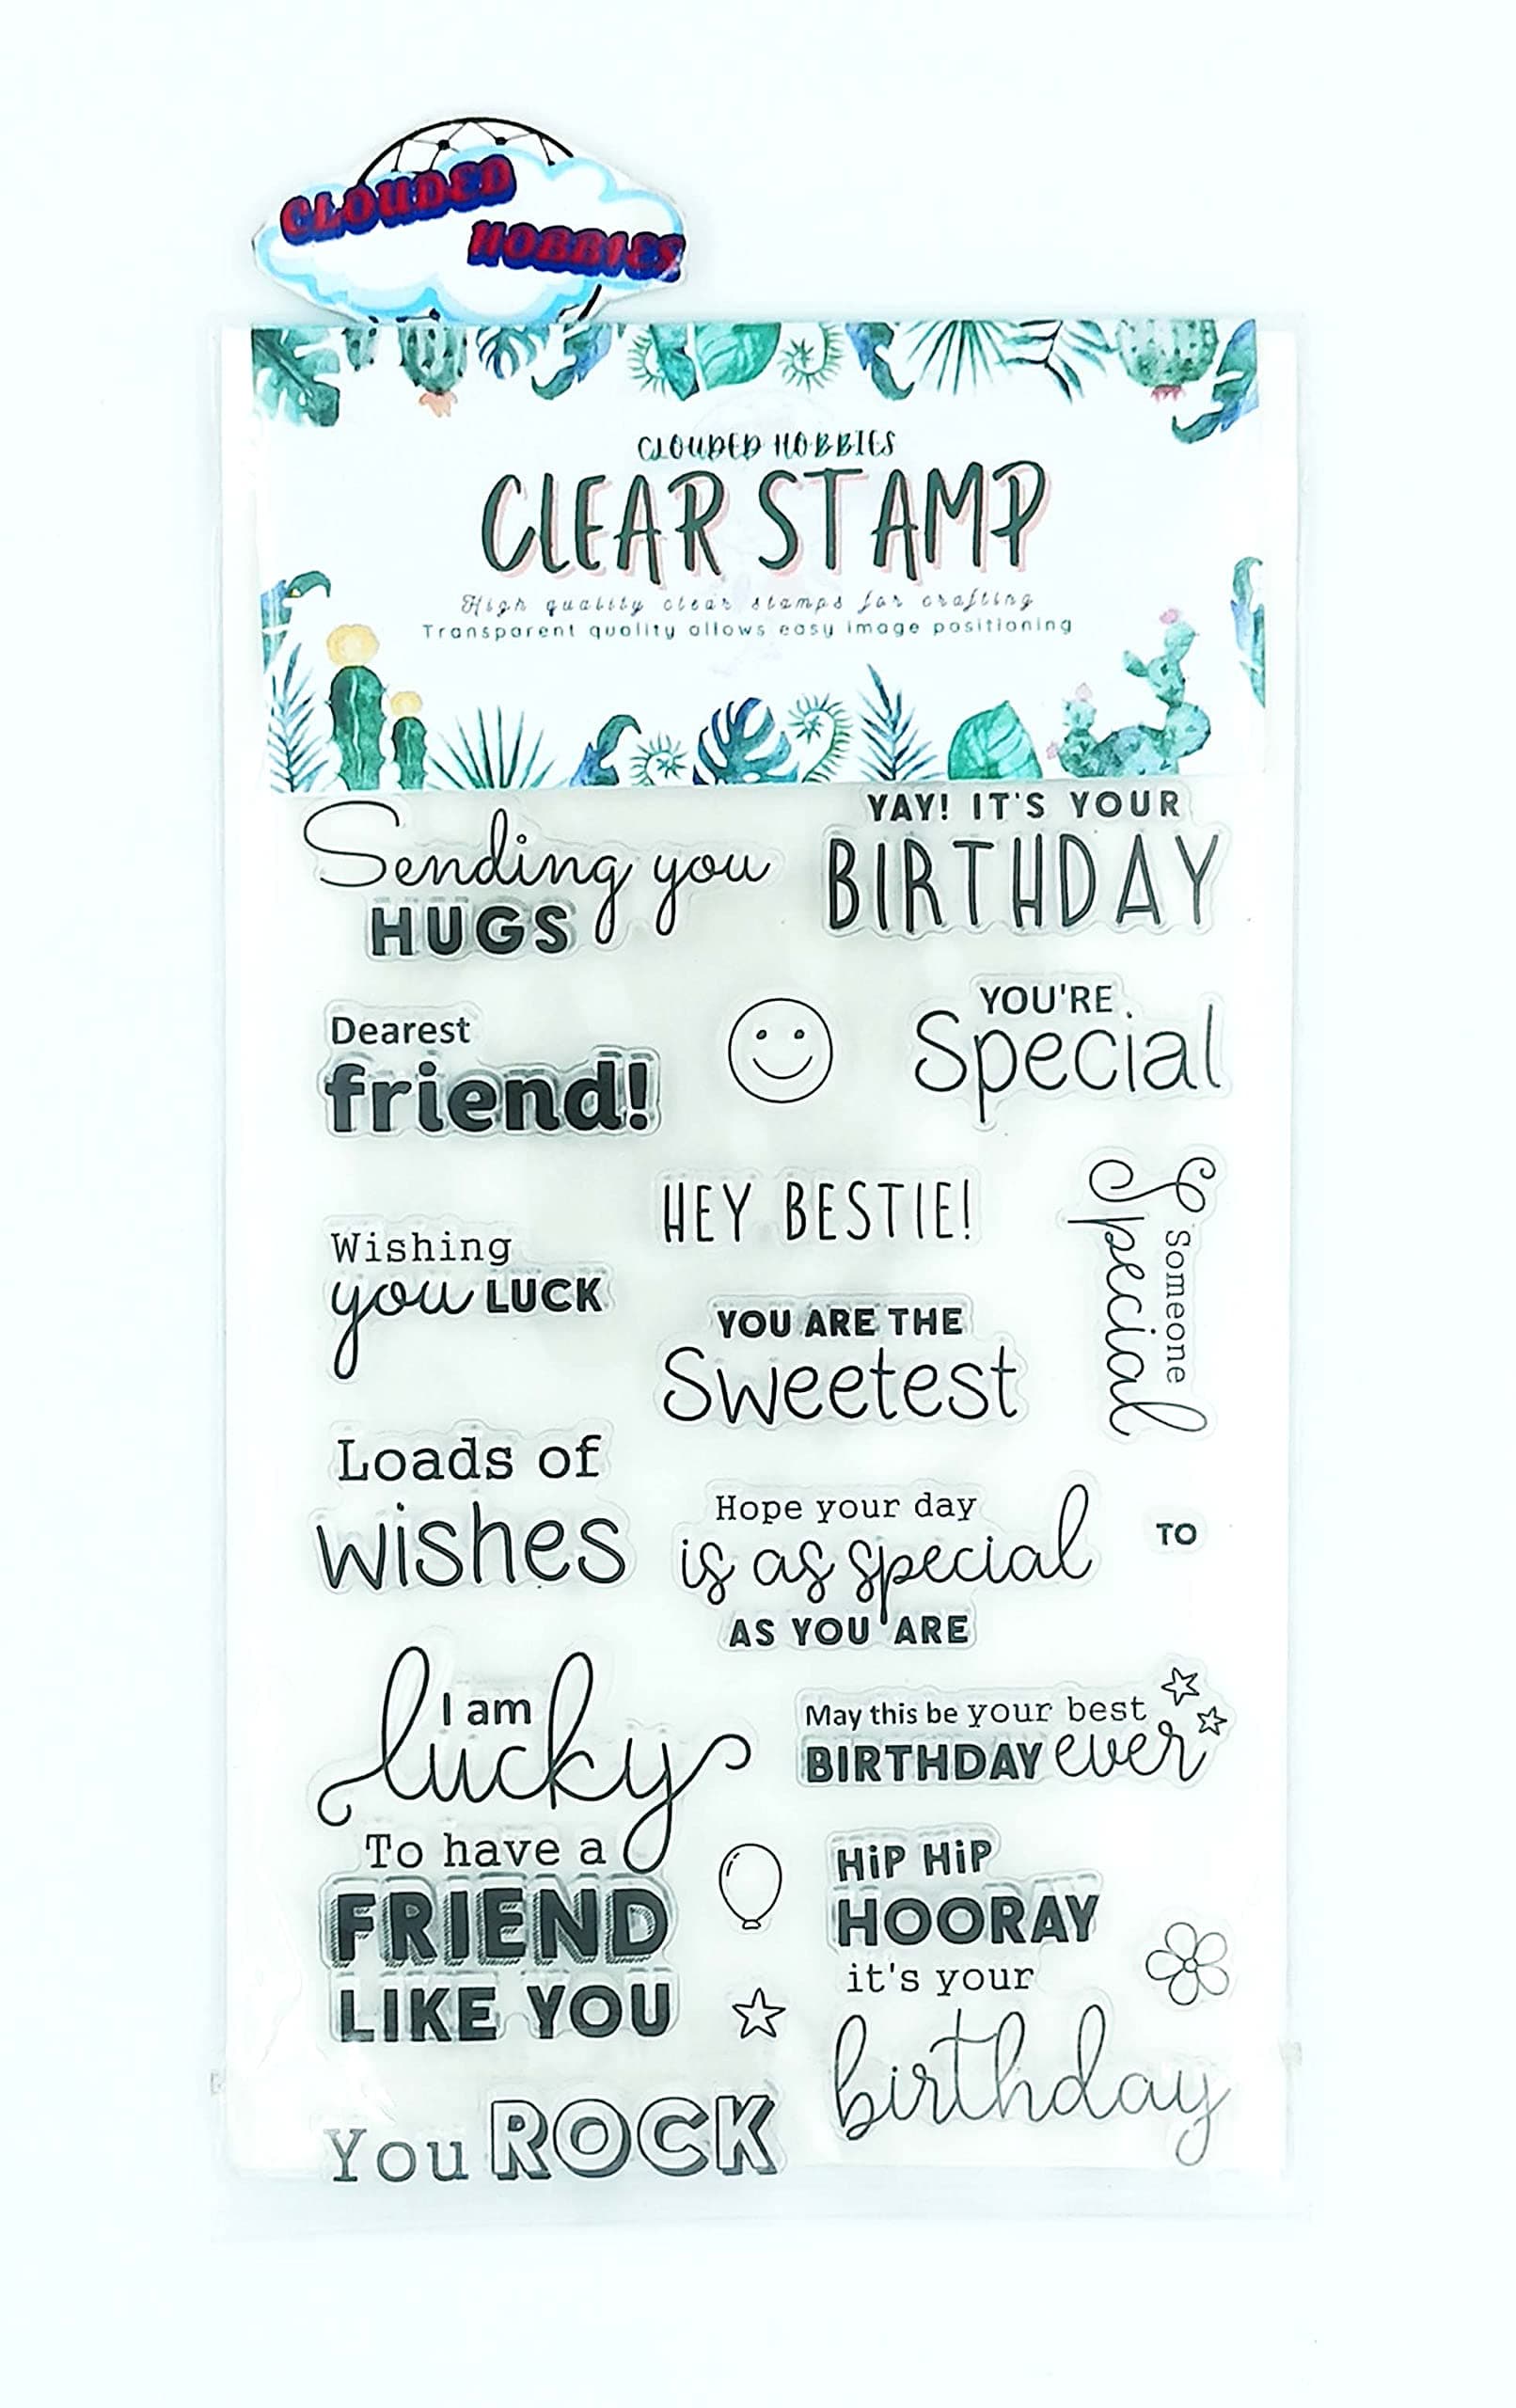 CLOUDED
HOBBIES
CLOUDED HOBBIES
CLEAR STAMP
High quality clear stamps for crafting
Transparent quality allows easy image positioning
Sending you
HUGS
YAY! IT'S YOUR
BIRTHDAY
Dearest
friend!
YOU'RE
Special
HEY BESTIE!
Someone
Special
Wishing
you LUCK
YOU ARE THE
Sweetest
Loads of
wishes
Hope your day
is as special
AS YOU ARE
TO
I am
lucky
To have a
FRIEND
LIKE YOU
May this be your best
BIRTHDAY ever
HiP HiP
HOORAY
it's your
birthday
You ROCK